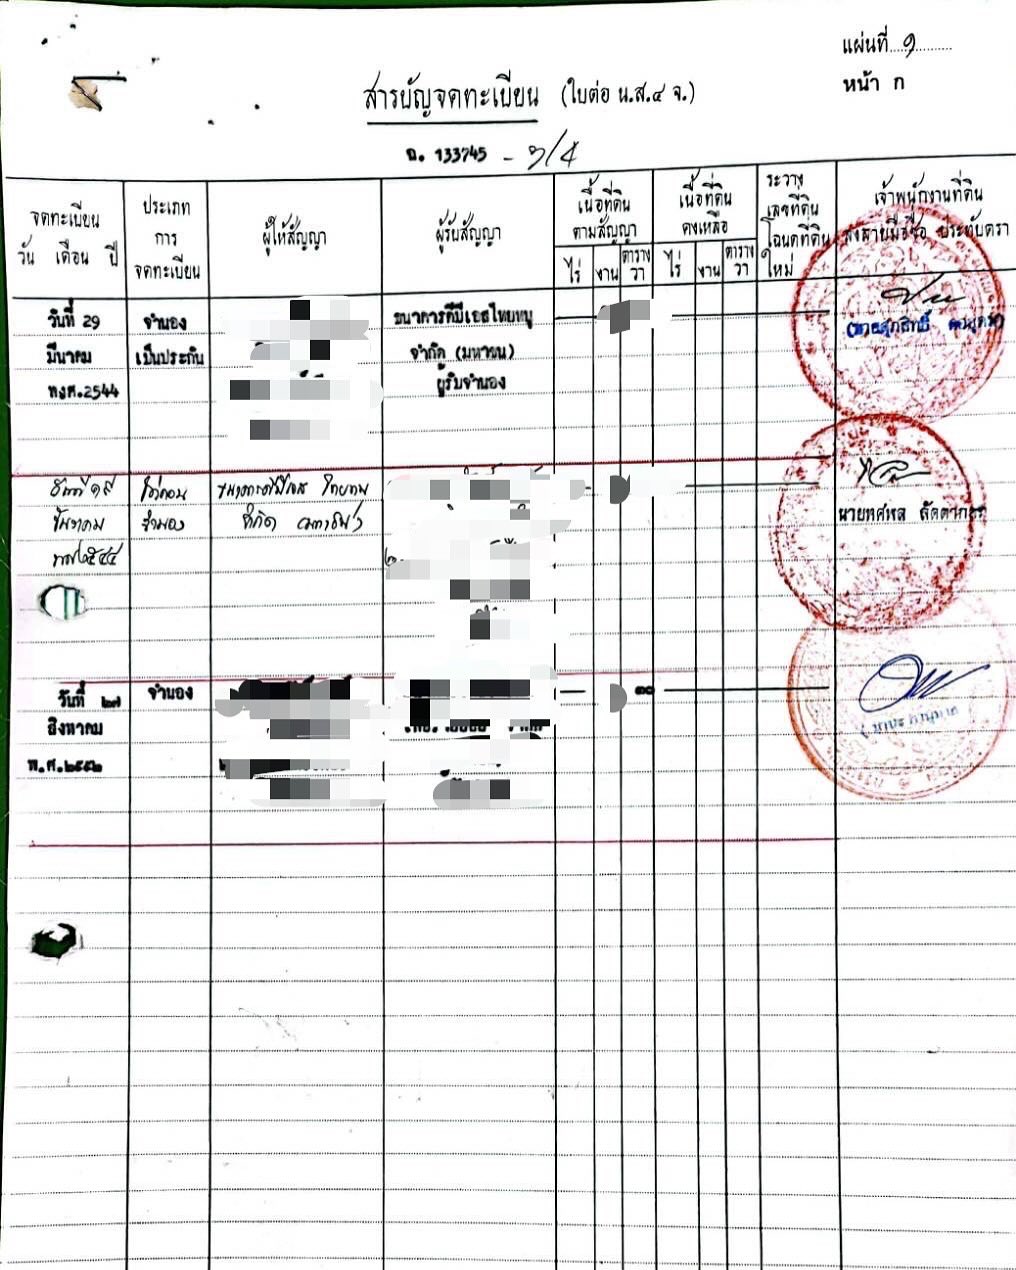 แผ่นที่ ๑
หน้า ก
สารบัญจดทะเบียน (ใบต่อ น.ส.๔ จ.)
ฉ. 133745
จดทะเบียน
วัน เดือน ปี
ประเภท
การ
จดทะเบียน
ผู้ให้สัญญา
ผู้รับสัญญา
เนื้อที่ดิน
ตามสัญญา
ไร่ งาน ตาราง
วา
เนื้อที่ดิน
คงเหลือ
ไร่ งาน ตาราง
วา
ระวาง
เลขที่ดิน
โฉนดที่ดิน
ใหม่
เจ้าพนักงานที่ดิน
ลงลายมือชื่อ ประทับตรา
วันที่ 29
มีนาคม
พ.ศ.2544
จำนอง
เป็นประกัน
ธนาคารดีบีเอสไทยทนุ
จำกัด (มหาชน)
ผู้รับจำนอง
วันที่ ๑๙
ธันวาคม
๒๕๔๔
ไถ่ถอน
จำนอง
ธนาคารดีบีเอส ไทยทนุ
จำกัด (มหาชน)
นายทศพล
วันที่ ๒๗
สิงหาคม
พ.ศ.๒๕๕๒
จำนอง
๓๐